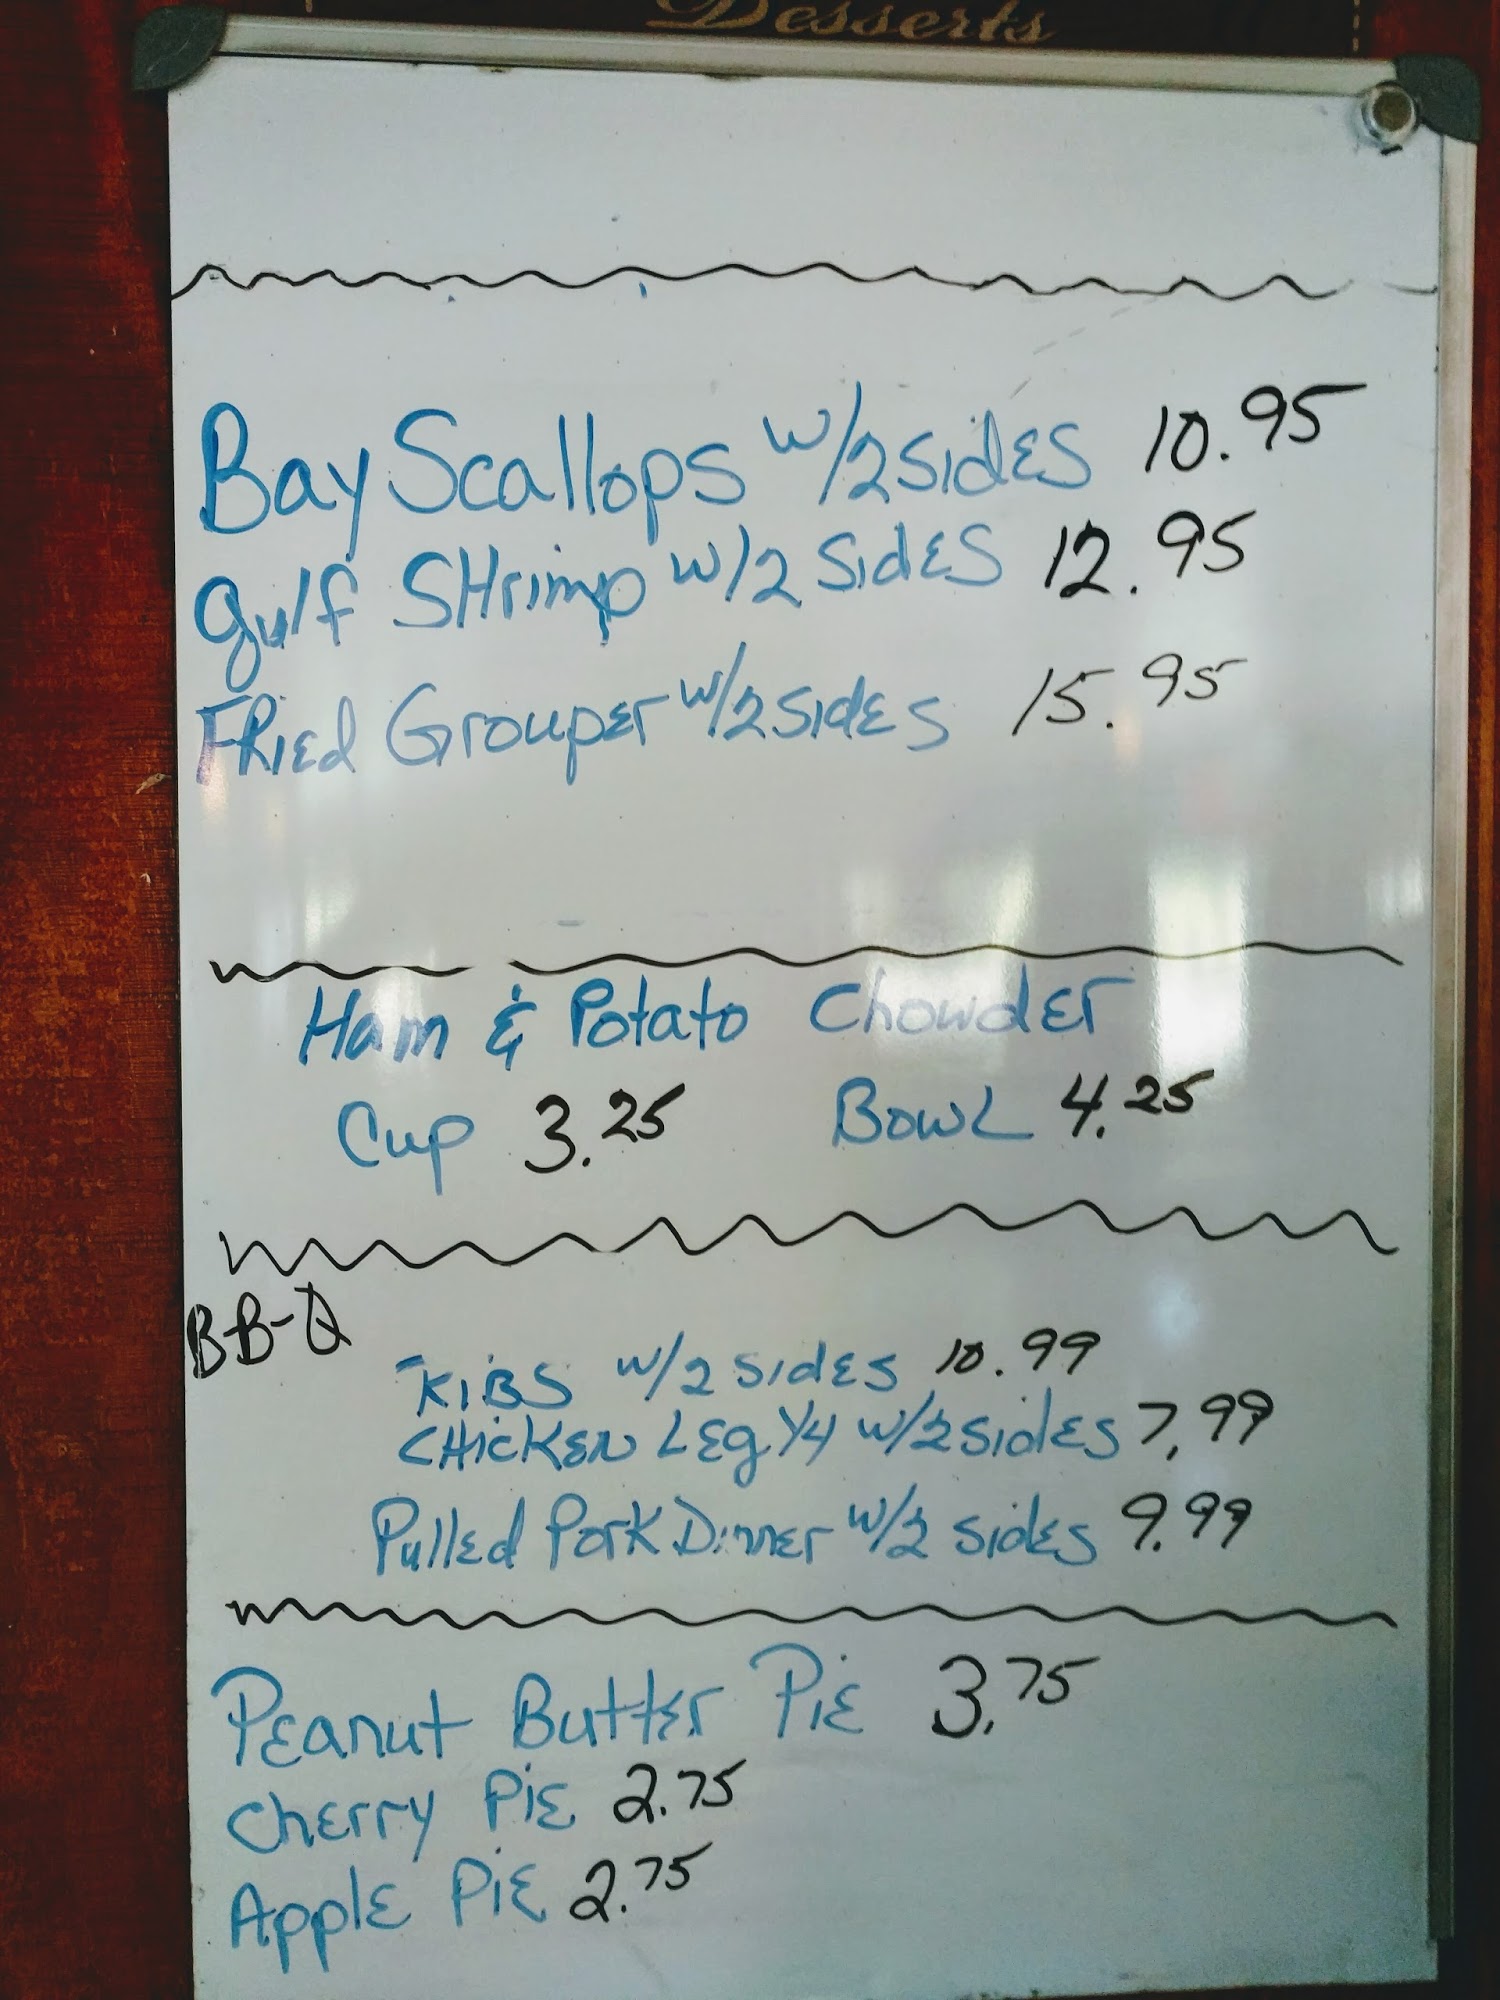 Desserts
Bay Scallops w/2 sides 10.95
gulf SHrimp w/2 sides 12.95
FRied Grouper w/2 sides 15.95
Ham & Potato Chowder
Cup 3.25 Bowl 4.25
B-B-Q
RIBS w/2 sides 10.99
CHicKEN LEg 1/4 w/2 sides 7,99
Pulled PorK Dinner w/2 sides 9.99
Peanut Butter Pie 3.75
Cherry Pie 2.75
Apple Pie 2.75